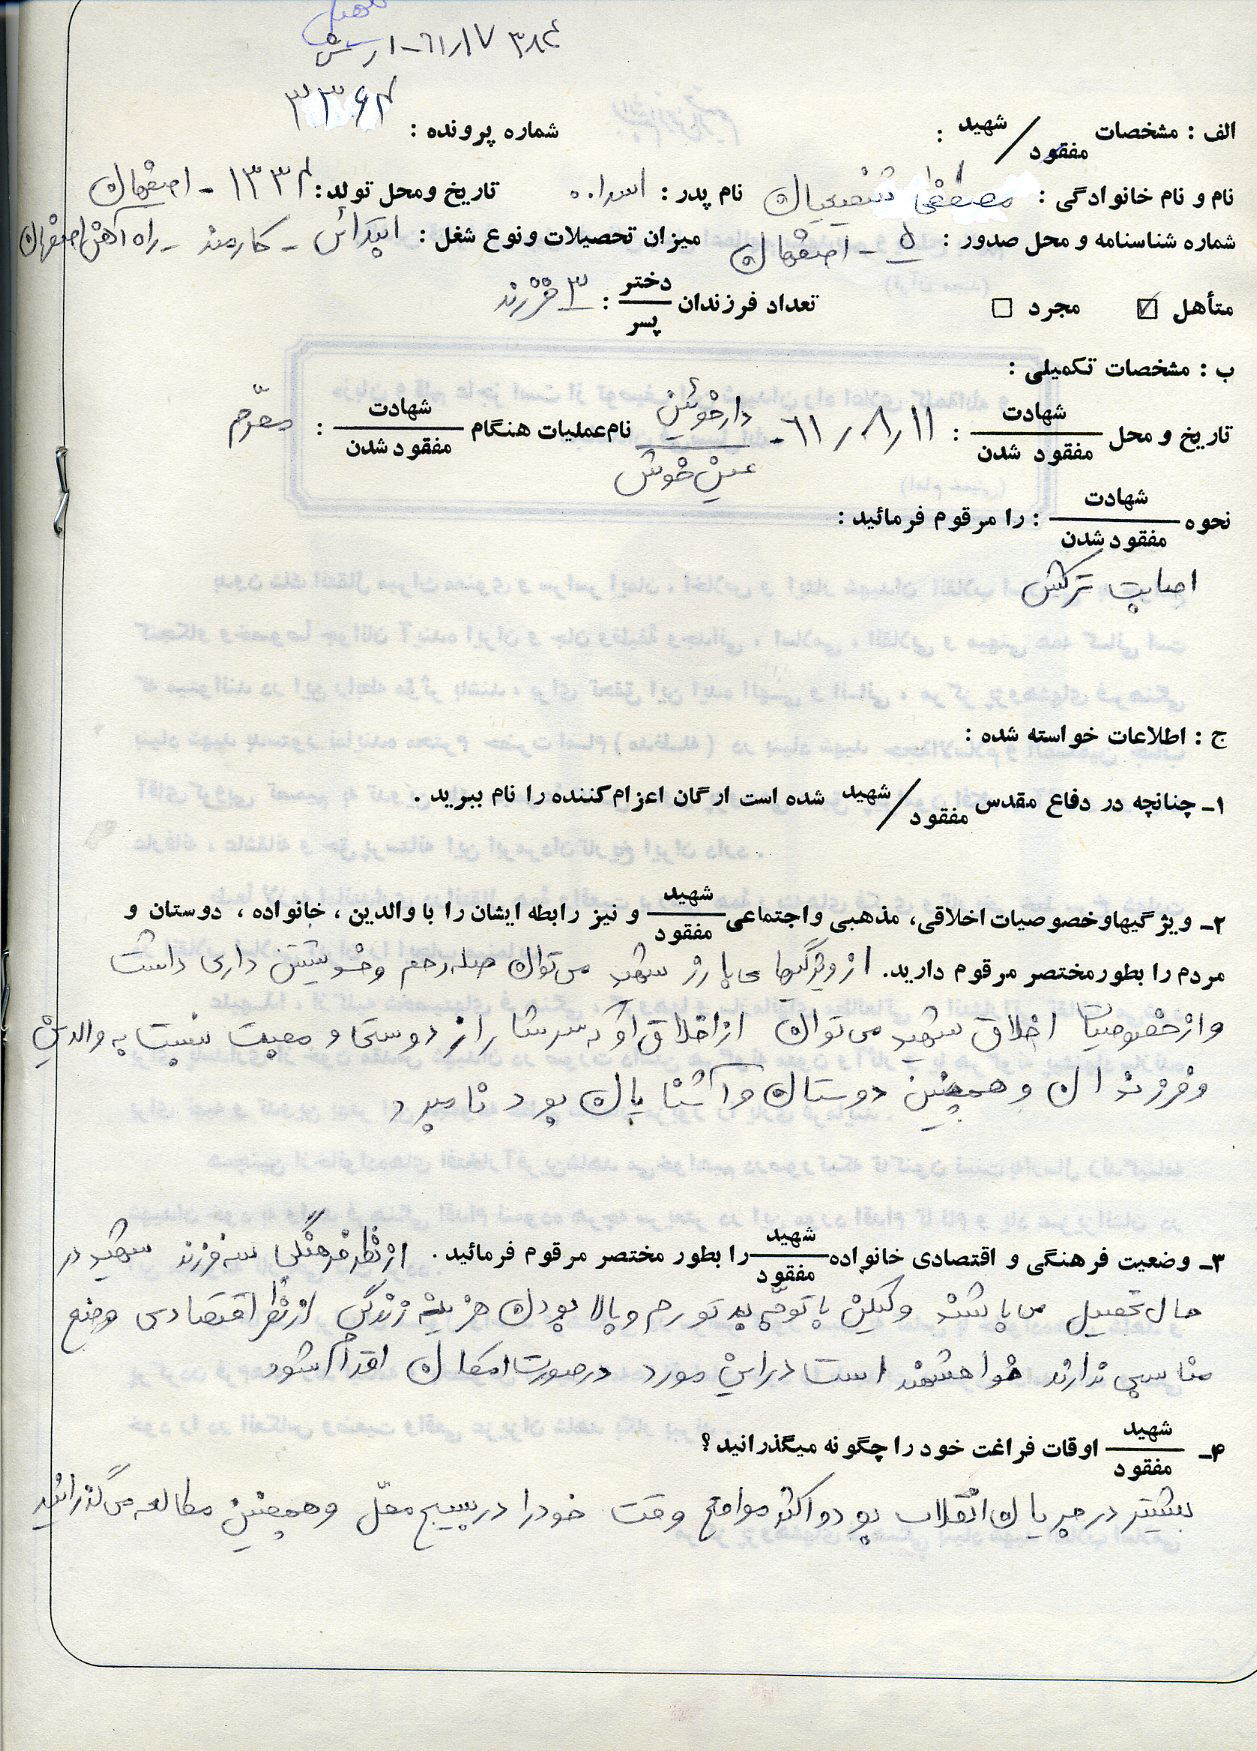 الف : مشخصات شهید / مفقود :
شماره پرونده : ۳۳۶۴
نام و نام خانوادگی : مصطفی شفیعیان نام پدر : اسداله تاریخ ومحل تولد : ۱۳۳۴ - اصفهان
شماره شناسنامه و محل صدور : ۵ - اصفهان میزان تحصیلات ونوع شغل : ابتدائی - کارمند - راه آهن اصفهان
متأهل ☑ مجرد ☐ تعداد فرزندان دختر / پسر : ۳ فرزند
ب : مشخصات تکمیلی :
تاریخ و محل شهادت / مفقود شدن : ۶۱/۸/۱۱ - دارخوئین / عین خوش نام عملیات هنگام شهادت / مفقود شدن : محرّم
نحوه شهادت / مفقود شدن : را مرقوم فرمائید :
اصابت ترکش
ج : اطلاعات خواسته شده :
۱ـ چنانچه در دفاع مقدس شهید / مفقود شده است ارگان اعزام کننده را نام ببرید .
۲ـ ویژگیها وخصوصیات اخلاقی، مذهبی واجتماعی شهید / مفقود و نیز رابطه ایشان را با والدین ، خانواده ، دوستان و
مردم را بطور مختصر مرقوم دارید. از ویژگیهای بارز شهید می‌توان صله رحم وخویشتن داری داشت
و از خصوصیات اخلاق شهید می‌توان از اخلاق او که سرشار از دوستی و محبت نسبت به والدین
و فرزندان و همچنین دوستان و آشنایان بود نامبرد
۳ـ وضعیت فرهنگی و اقتصادی خانواده شهید / مفقود را بطور مختصر مرقوم فرمائید . از نظر فرهنگی سه فرزند شهید در
حال تحصیل می‌باشند ولیکن با توجّه به تورم و بالا بودن هزینه زندگی از نظر اقتصادی وضع
مناسبی ندارند خواهشمند است در این مورد در صورت امکان اقدام شود
۴ـ شهید / مفقود اوقات فراغت خود را چگونه میگذرانید ؟
بیشتر در جریان انقلاب بود و اکثر مواقع وقت خود را در بسیج محلّ و همچنین مطالعه می‌گذرانید